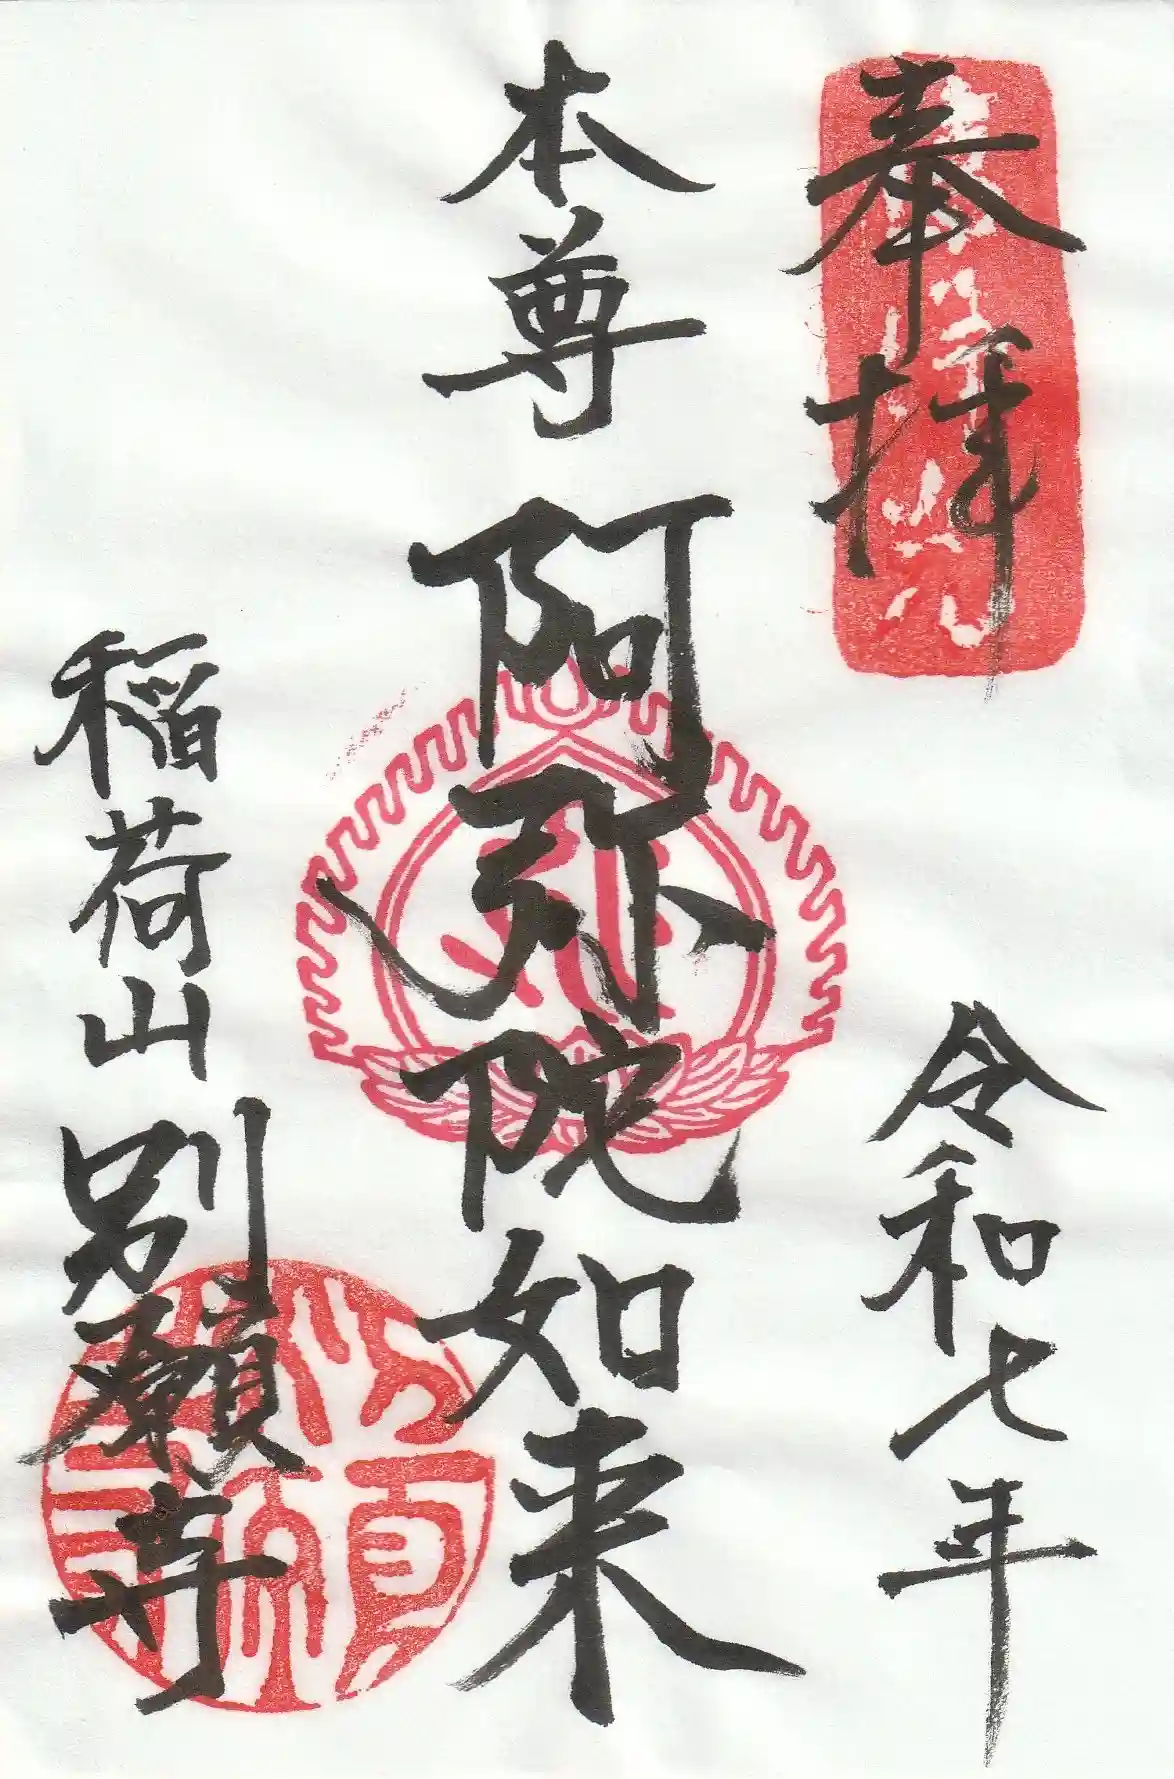 奉拝
令和七年
本尊 阿弥陀如来
稲荷山 別願寺